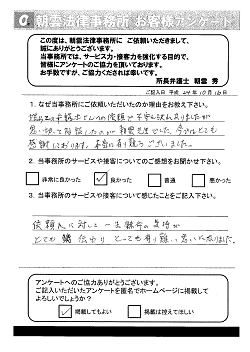 朝雲法律事務所 お客様アンケート
この度は、朝雲法律事務所に ご依頼いただきまして、
誠にありがとうございます。
当事務所では、サービス力・接客力を強化する目的で、
皆様にアンケートのご協力を頂いております。
お手数ですが、ご協力くだされば幸いです。
所長弁護士 朝雲 秀
ご記入日 平成 24年 10月 16日
1. なぜ当事務所にご依頼いただいたのか理由をお教え下さい。
2. 当事務所のサービスや接客についてのご感想をお聞かせ下さい。
非常に良かった 良かった 普通 悪かった
3. 当事務所のサービスや接客について感じたことをご記入下さい。
依頼人に対して一生懸命な気持が
とても 伝わり とっても有り難い思いになりました。
アンケートへのご協力ありがとうございます。
ご記入いただいたアンケートを匿名でホームページに掲載して
よろしいでしょうか?
掲載してもよい 掲載は控えてほしい